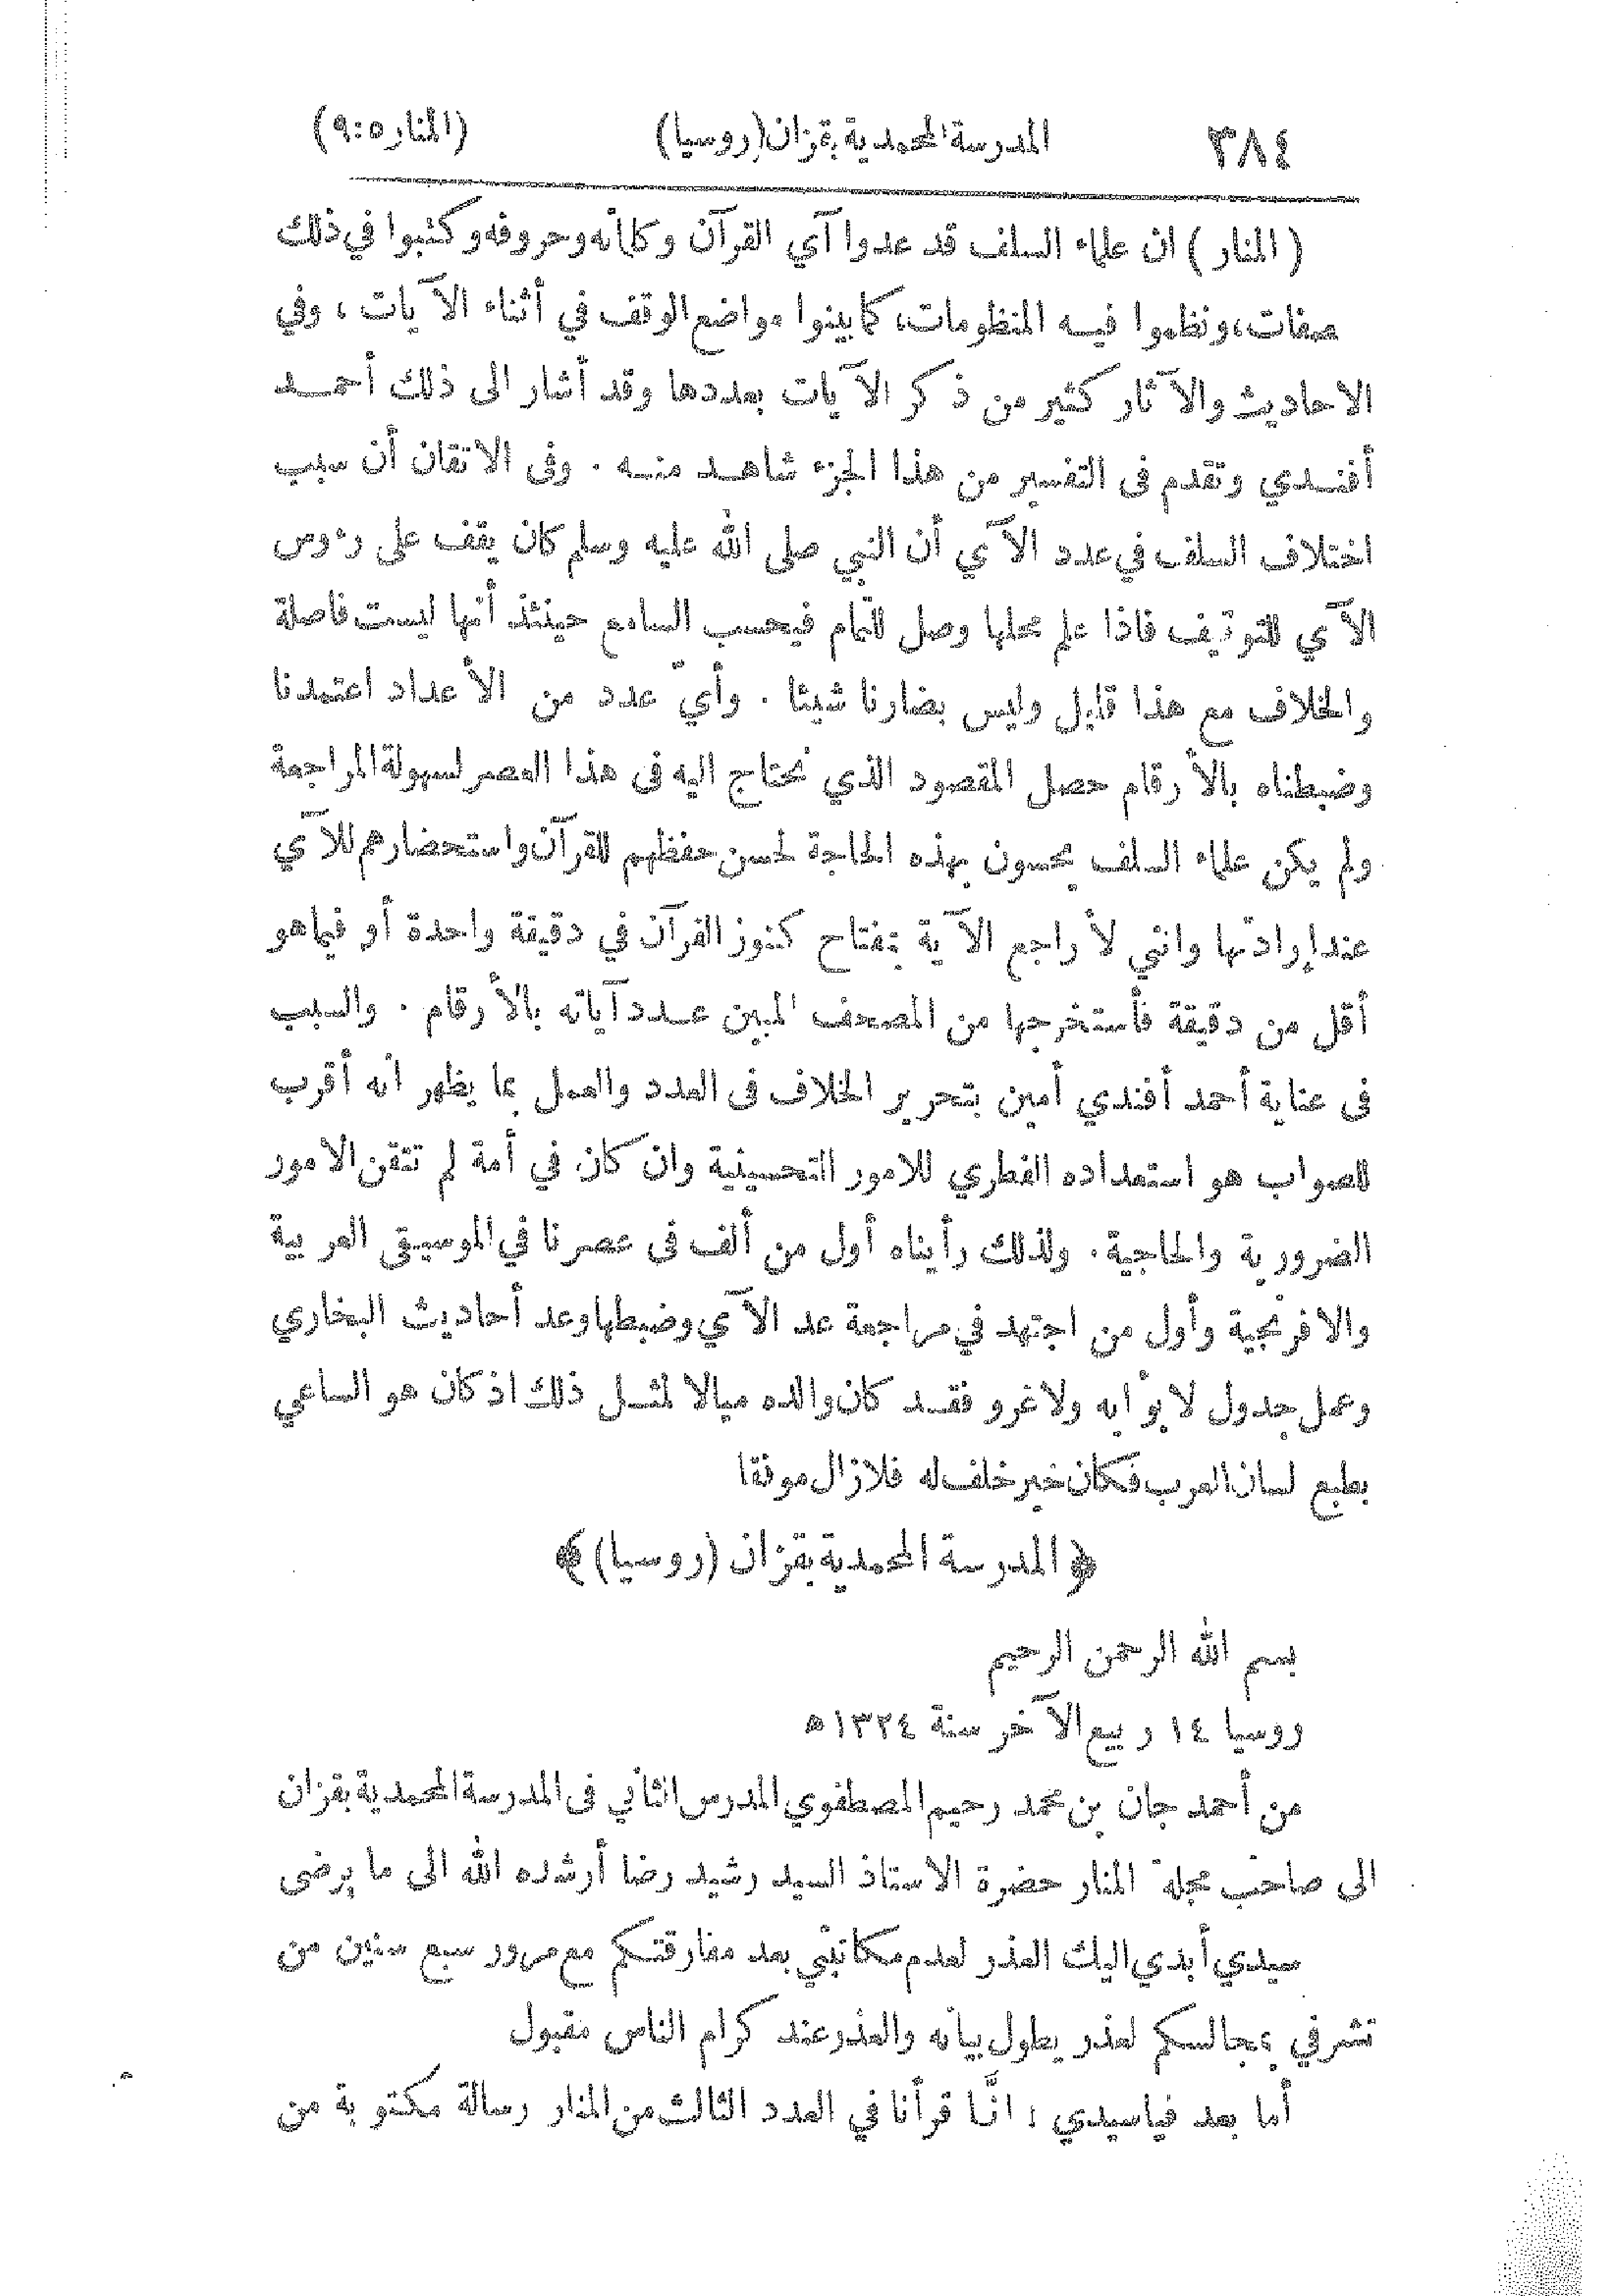 ٣٨٤ المدرسة المحمدية بقزان (روسيا) (المنار ٥:٩)
( المنار ) ان علماء السلف قد عدوا آي القرآن وكلمانه وحروفه وكتبوا في ذلك
صفات، ونظموا فيه المنظومات، كما بينوا مواضع الوقف في أثناء الآيات ، وفي
الاحاديث والآثار كثير من ذكر الآيات بعددها وقد أشار الى ذلك أحمد
أفندي وتقدم فى التفسير من هذا الجزء شاهد منه . وفى الاتقان أن سبب
اختلاف السلف في عدد الآي أن النبي صلى الله عليه وسلم كان يقف على رءوس
الآي للتوقيف فاذا علم محلها وصل للتمام فيحسب السامع حينئذ أنها ليست فاصلة
والخلاف مع هذا قليل وليس بضارنا شيئا . وأيّ عدد من الأعداد اعتمدنا
وضبطناه بالأرقام حصل المقصود الذي نحتاج اليه فى هذا العصر لسهولة المراجعة
ولم يكن علماء السلف يحسون بهذه الحاجة لحسن حفظهم للقرآن واستحضارهم للآي
عند إرادتها وانني لأراجع الآية بمفتاح كنوز القرآن في دقيقة واحدة أو فيما هو
أقل من دقيقة فأستخرجها من المصحف المبين عدد آياته بالأرقام . والسبب
فى عناية أحمد أفندي أمين بتحرير الخلاف فى العدد والعمل بما يظهر انه أقرب
للصواب هو استعداده الفطري للامور التحسينية وان كان في أمة لم تتقن الامور
الضرورية والحاجية . ولذلك رأيناه أول من ألف فى عصرنا في الموسيقى العربية
والافرنجية وأول من اجتهد في مراجعة عد الآي وضبطها وعد أحاديث البخاري
وعمل جدول لابوابه ولاغرو فقد كان والده ميالا لمثل ذلك اذ كان هو الساعي
بطبع لسان العرب فكان خير خلف له فلازال موفقا
﴿ المدرسة المحمدية بقزان (روسيا) ﴾
بسم الله الرحمن الرحيم
روسيا ١٤ ربيع الآخر سنة ١٣٢٤ ه
من أحمد جان بن محمد رحيم المصطفوي المدرس الثاني فى المدرسة المحمدية بقزان
الى صاحب مجلة المنار حضرة الاستاذ السيد رشيد رضا أرشده الله الى ما يرضى
سيدي أبدي اليك العذر لعدم مكاتبتي بعد مفارقتكم مع مرور سبع سنين من
تشرفي بمجالسكم لعذر يطول بيانه والعذر عند كرام الناس مقبول
أما بعد فياسيدي ؛ انَّا قرأنا في العدد الثالث من المنار رسالة مكتوبة من